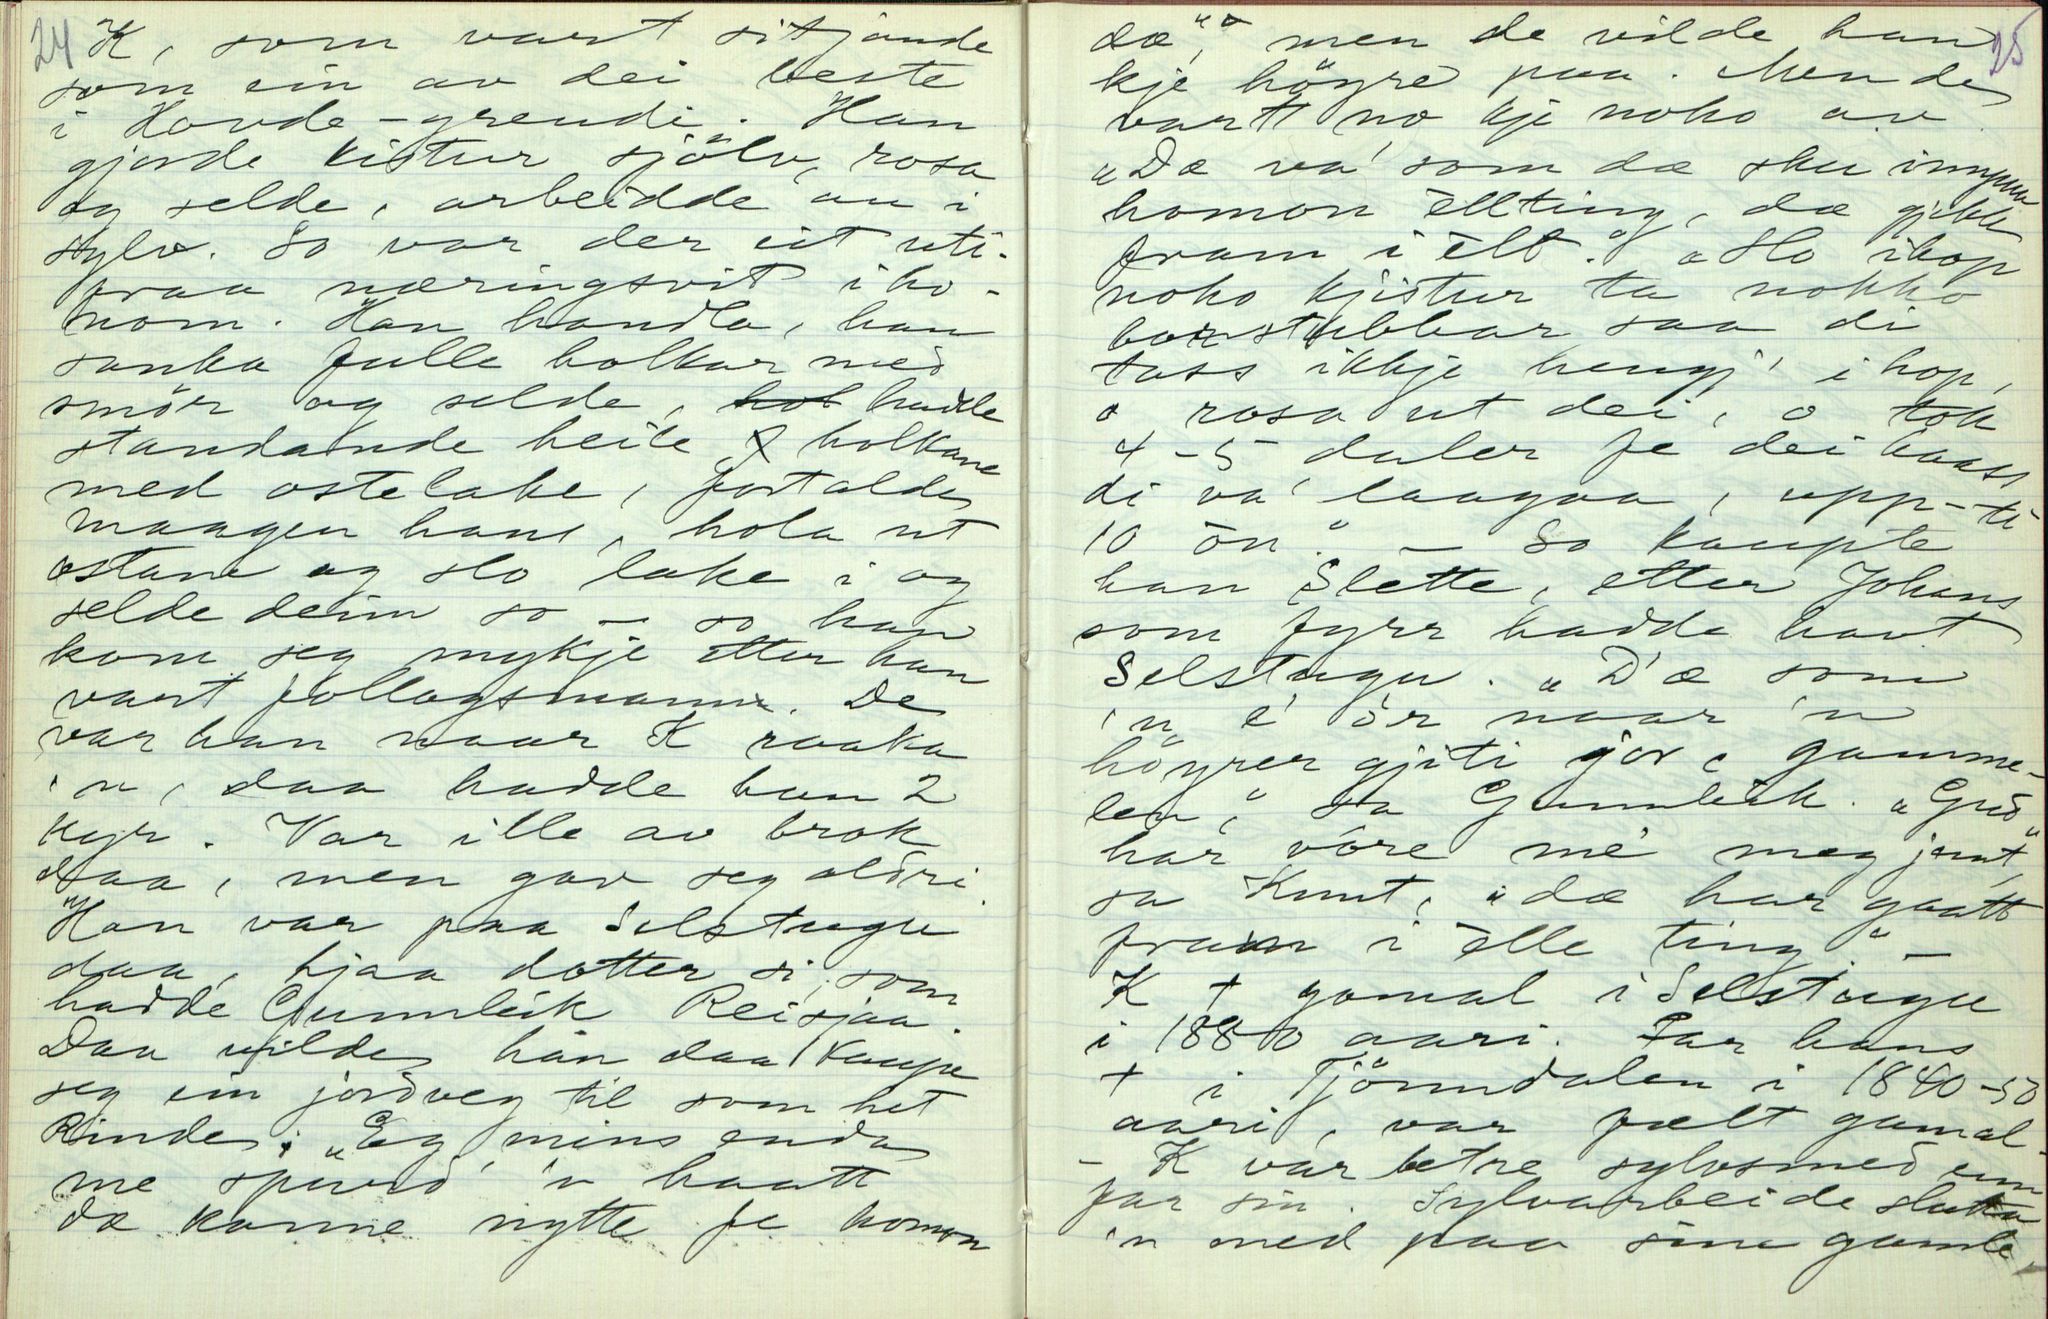 24
K, som vart sitjande
som ein av dei beste
i Hovde-grendi. Han
gjorde kistur sjölv, rosa
og selde, arbeidde au i
sylv. So var der eit uti-
fraa næringsvit i ho-
nom. Han handla, han
sanka fulle holkar med
smör og selde, hol hadde
standande heile holkane
med ostelake, fortalde
maagen hans, hola ut
ostane og slo lake i og
selde deim so – so han
kom seg mykje etter han
vart follagsmann. De
var han naar K raaka
'n, daa hadde han 2
kyr. Var ille av brok
daa, men gav seg aldri.
Han var paa Selstugu
daa, hjaa dotter si, som
hadde Gunnleik Reisjaa.
Daa vilde han daa kaupe
seg ein jordveg til som het
Rinde. "Eg mins enda
me spurd' 'n haatt
dæ kunne nytte fe honon
25
dæ", men de vilde han
kje höyre paa. Men de
vart no kje noko av.
"Dæ va' som dæ sku inngaa
honon èllting, dæ gjekk
fram i èlt." "Slo ihop
noko kjistur ta nokko
borstubbar saa di
tass ikkje hengj' i hop,
o rosa ut dei, o tok
4-5 daler fe dei haass
di va' laagaa, upp-ti
10 ön." – So kaupte
han Slette, etter Johans
som fyrr hadde havt
Selstugu. "D'æ som
'n e' ör naar 'n
höyrer gjiti jor, gamme-
len," sa Gunnleik. "Gud
har vöre me' meg jamt,"
sa Knut, "dæ har gaatt
fram i èlle ting." –
K † gamal i Selstugu
i 1880 aari. Far hans
† i Tjönndalen i 1840-50
aari, var fælt gamal
– K var betre sylvsmed enn
far sin. Sylvarbeide slutta
'n med paa sine gamle